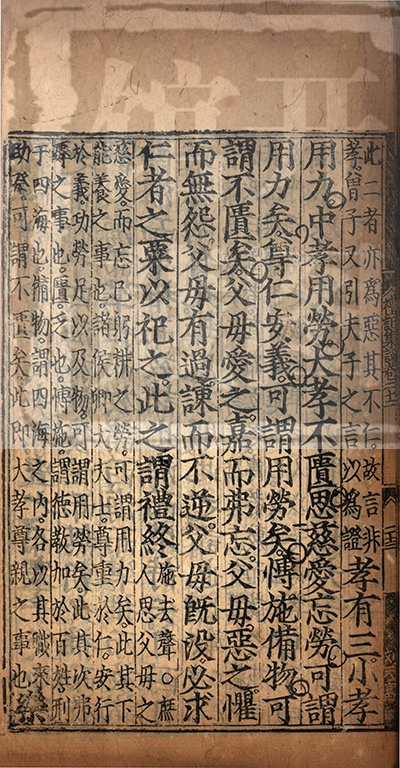 此二者亦爲惡其不仁故言非
孝曾子又引夫子之言以爲證
孝有三小孝
用力中孝用勞大孝不匱思慈愛忘勞可謂
用力矣尊仁安義可謂用勞矣愽施備物可
謂不匱矣父母愛之嘉而弗忘父母惡之懼
而無怨父母有過諫而不逆父母旣没必求
仁者之粟以祀之此之謂禮終
施去聲○庶
人思父母之
慈愛而忘己躬耕之勞可謂用力矣此其下
能養之事也諸侯卿大夫士尊重於仁安行
於義功勞足以及物可謂用勞矣此其次弗
辱之事也匱乏也愽施謂德敎加於百姓刑
于四海也備物謂四海之內各以其職來
助祭可謂不匱矣此卽大孝尊親之事也
樂